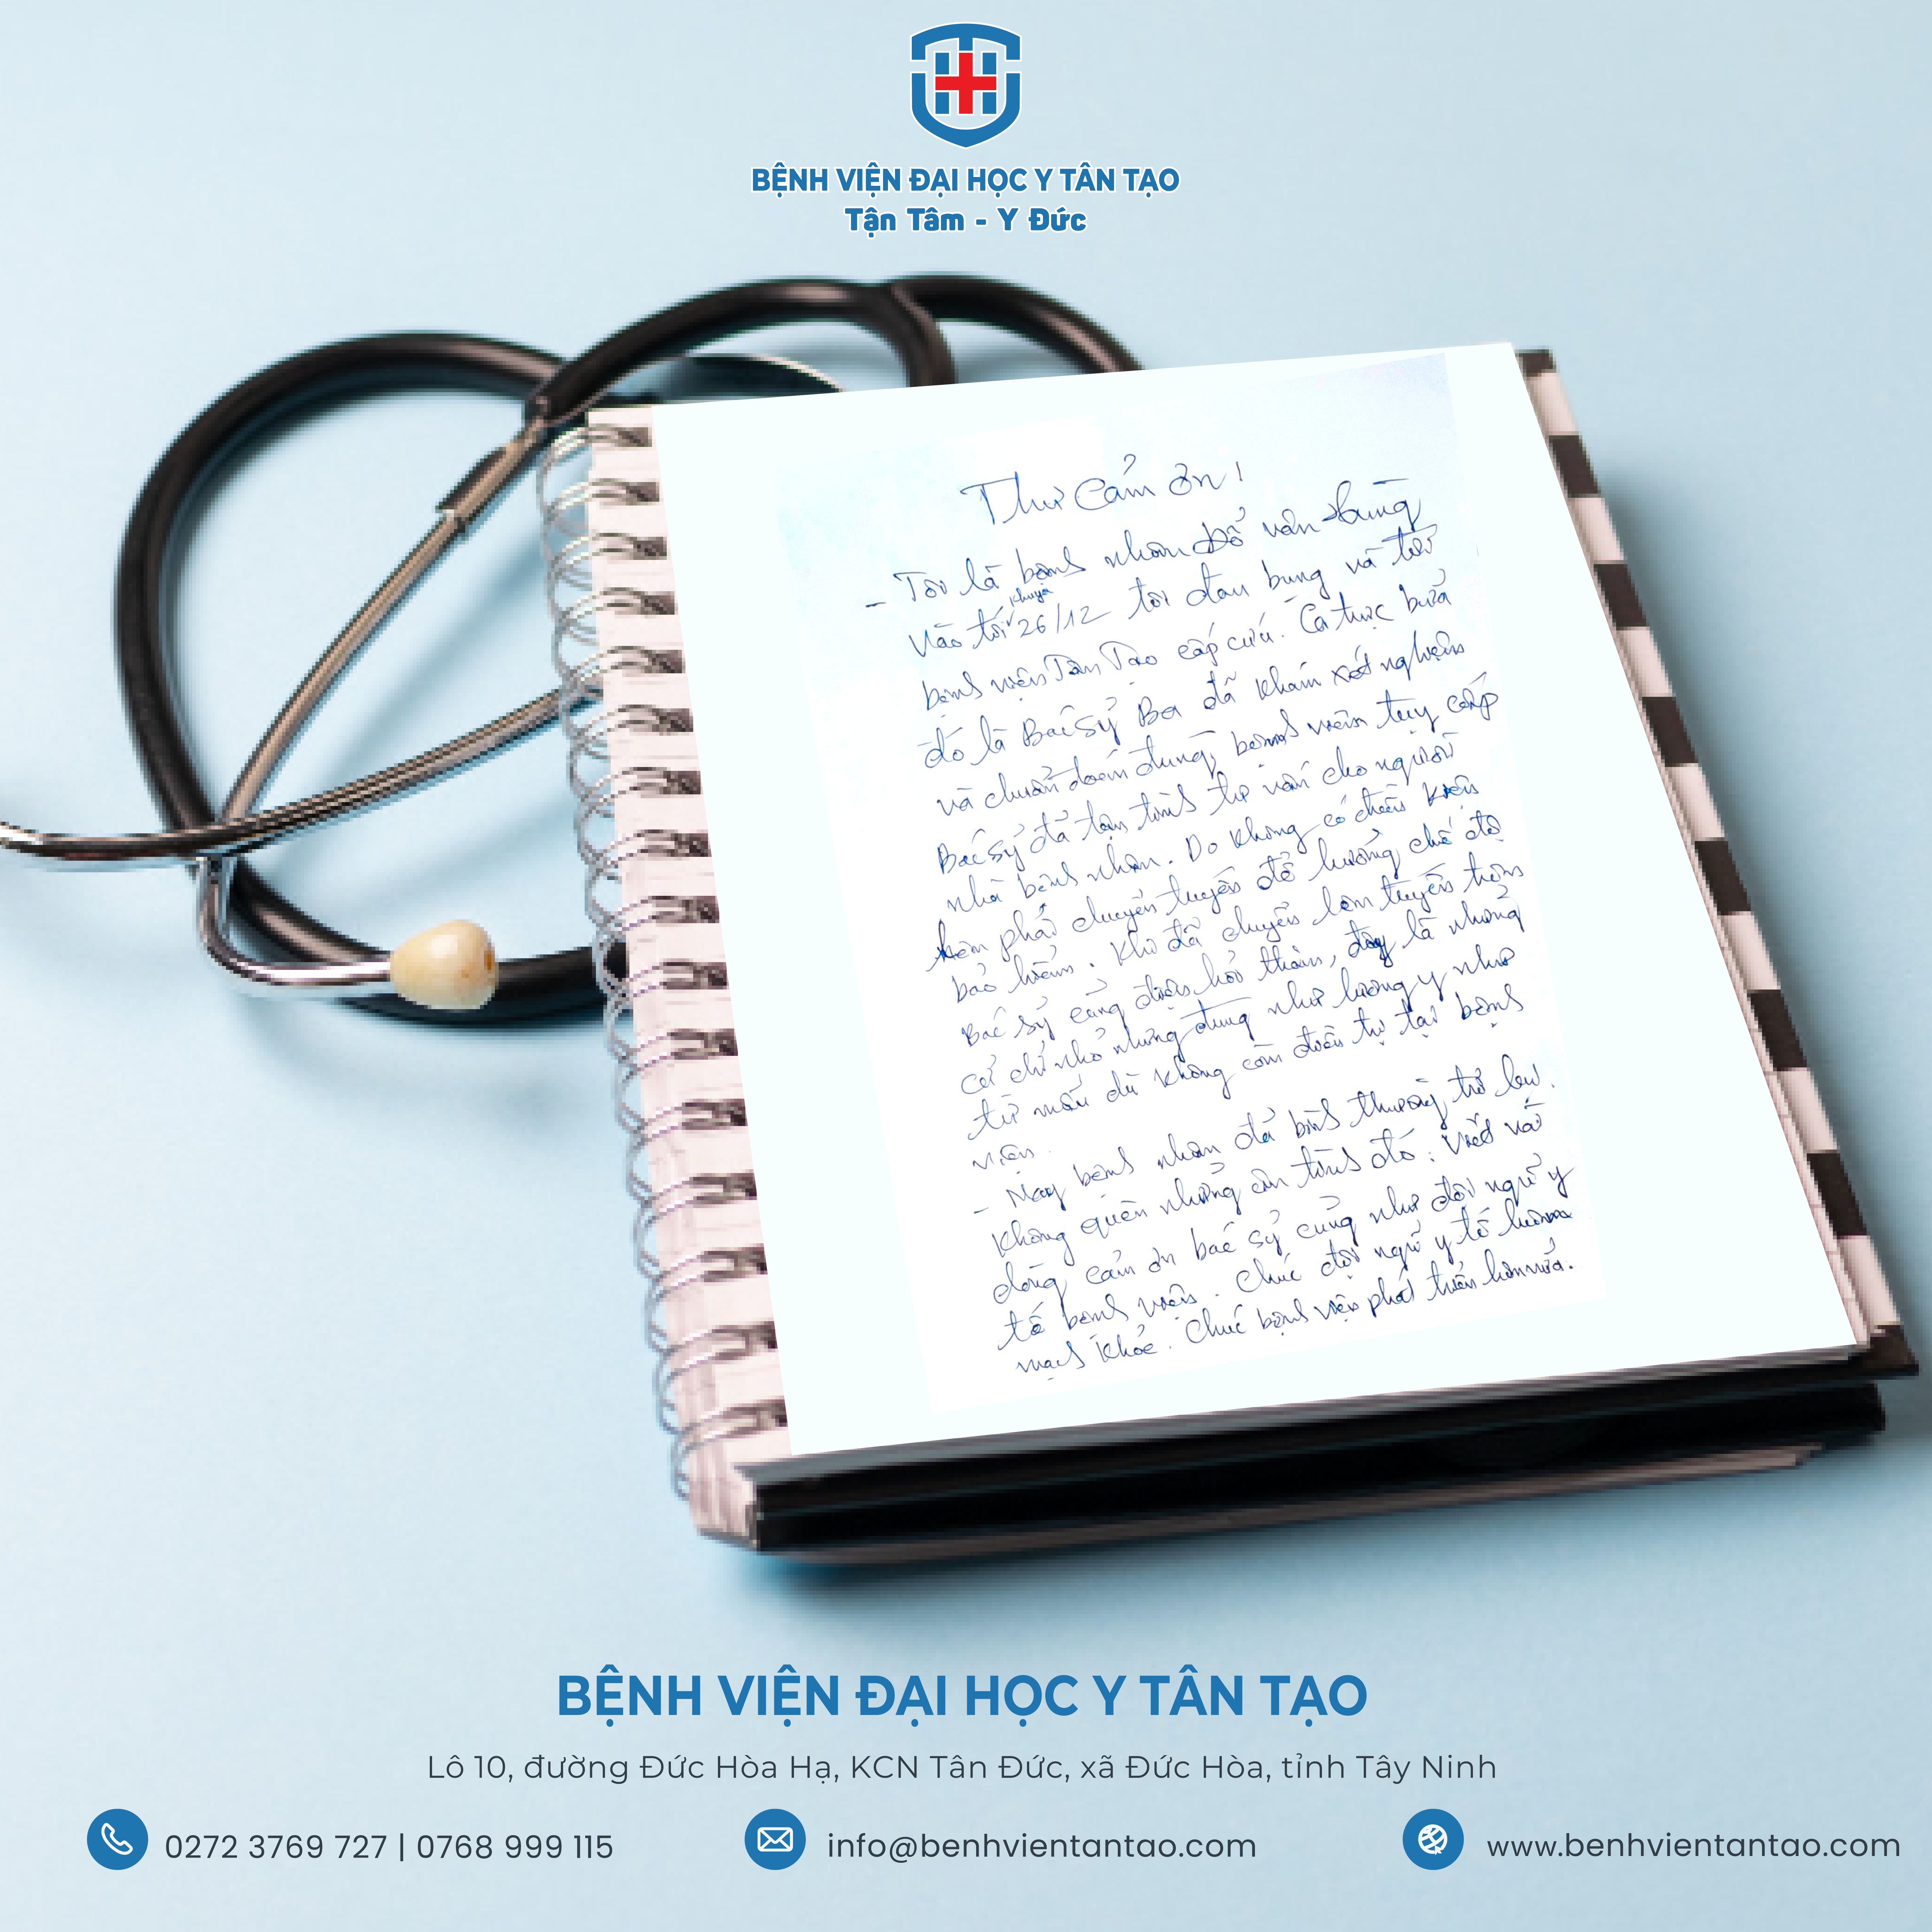 BỆNH VIỆN ĐẠI HỌC Y TÂN TẠO
Tận Tâm - Y Đức
Thư Cảm ơn!
- Tôi là bệnh nhân Đỗ văn
Vào tối khuya 26/12 tôi đau bụng và tới
bệnh viện Tân Tạo cấp cứu. Ca trực bữa
đó là Bác sỷ Ba đã khám xét nghiệm
và chuẩn đoán đúng bệnh viêm tụy cấp
Bác sỷ đã tận tình tư vấn cho người
nhà bệnh nhân. Do không có
phải chuyển tuyến để hưởng chế độ
bảo hiểm. Khi đã chuyển lên tuyến trên
Bác sỷ cũng điện hỏi thăm, đây là những
cử chỉ nhỏ nhưng đúng như lương y như
từ mẫu dù không còn điều trị tại bệnh
viện.
- Nay bệnh nhân đã bình thường trở lại.
không quên những ân tình đó. Viết vài
dòng cảm ơn bác sỷ cũng như đội ngũ y
tế bệnh viện. Chúc đội ngũ y tế luôn
mạnh khỏe. Chúc bệnh viện phát triển hơn nữa.
BỆNH VIỆN ĐẠI HỌC Y TÂN TẠO
Lô 10, đường Đức Hòa Hạ, KCN Tân Đức, xã Đức Hòa, tỉnh Tây Ninh
0272 3769 727 | 0768 999 115
info@benhvientantao.com
www.benhvientantao.com